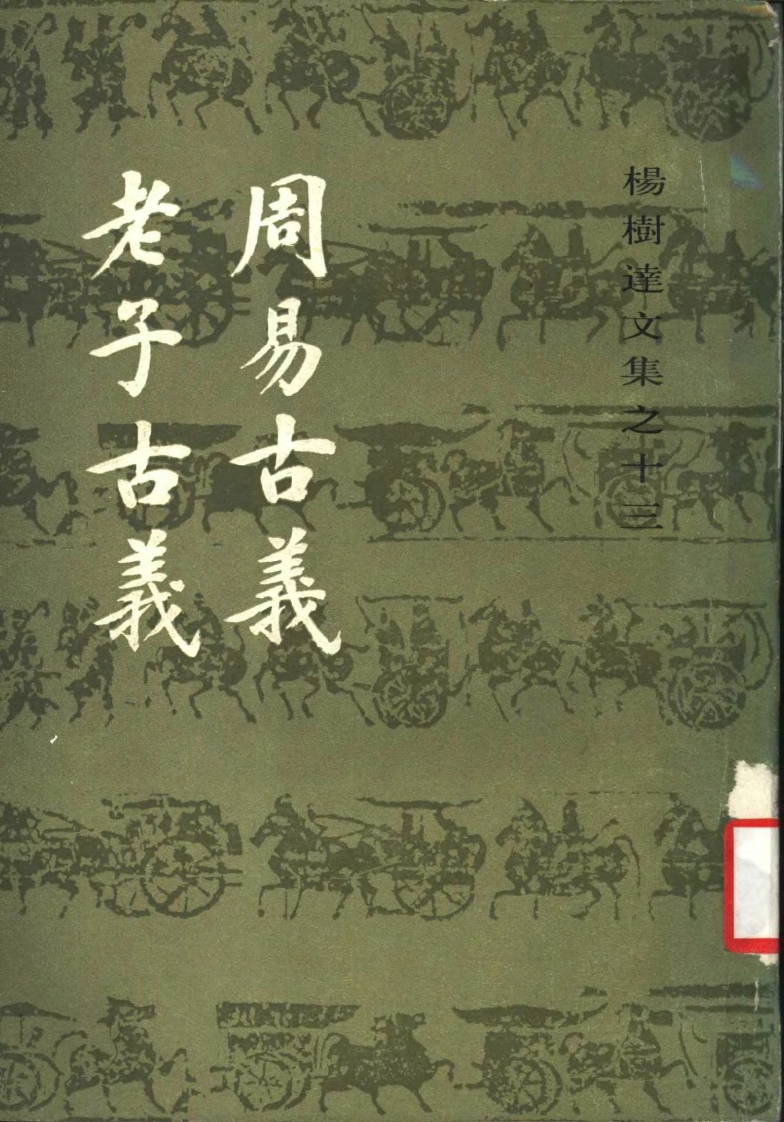 楊樹達文集之十三
周易古義
老子古義